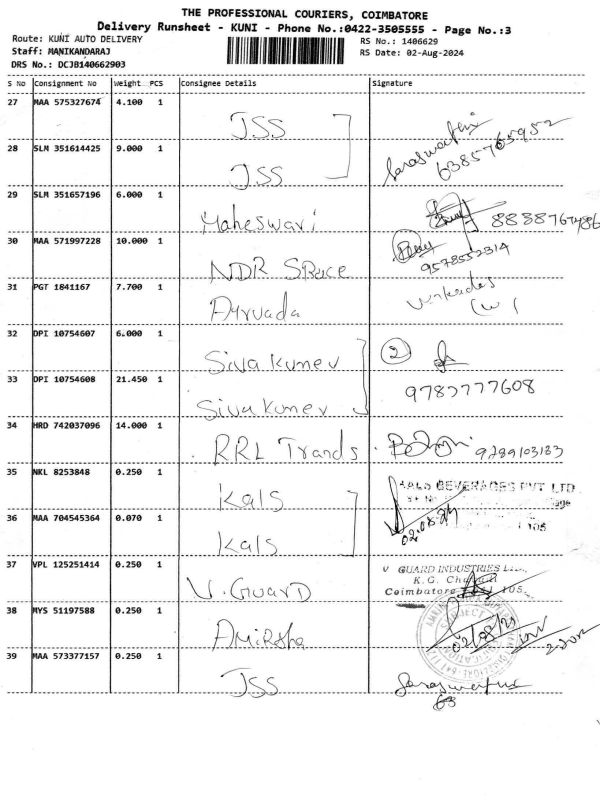 THE PROFESSIONAL COURIERS, COIMBATORE
Delivery Runsheet - KUNI - Phone No.:0422-3505555 - Page No.:3
Route: KUNI AUTO DELIVERY
RS No.: 1406629
Staff: MANIKANDARAJ
RS Date: 02-Aug-2024
DRS No.: DCJB140662903
S No Consignment No Weight PCS Consignee Details Signature
27 MAA 575327674 4.100 1
JSS
28 SLM 351614425 9.000 1
JSS
6385765952
29 SLM 351657196 6.000 1
Maheswari
30 MAA 571997228 10.000 1
NDR Space
9578552314
31 PGT 1841167 7.700 1
32 DPI 10754607 6.000 1
Sivakumev
2
33 DPI 10754608 21.450 1
Sivakumev
9787777608
34 HRD 742037096 14.000 1
RRL Trands
9289103183
35 NKL 8253848 0.250 1
Kals
BEVERAGES PVT LTD
02.08.24
36 MAA 704545364 0.070 1
Kals
105
37 VPL 125251414 0.250 1
V.Guard
V GUARD INDUSTRIES LTD.,
K.G.
Coimbatore 105.
38 MYS 51197588 0.250 1
Amirsha
39 MAA 573377157 0.250 1
JSS
63